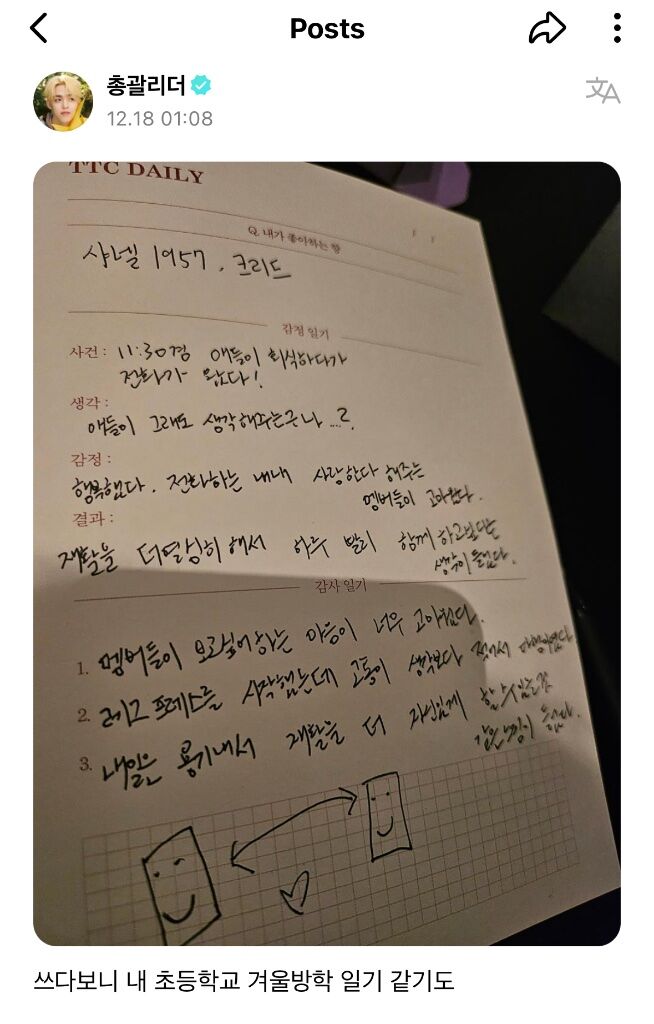 Posts
총괄리더
12.18 01:08
TTC DAILY
Q. 내가 좋아하는 향
샤넬 1957, 크리드
감정 일기
사건 : 11:30경 애들이 회식하다가
전화가 왔다!
생각 :
애들이 그래도 생각해주는구나 ...?
감정 :
행복했다. 전화하는 내내 사랑한다 해주는
멤버들이 고마웠다.
결과 :
재활을 더 열심히 해서 아주 빨리 함께 하고싶다는
생각이 들었다.
감사 일기
1. 멤버들이 보고싶어하는 마음이 너무 고마웠다.
2. 레그 프레스를 시작했는데 고통이 생각보다 적어서 다행이었다.
3. 내일은 용기내서 재활을 더 자신있게 할 수 있을것
같은 느낌이 들었다.
쓰다보니 내 초등학교 겨울방학 일기 같기도